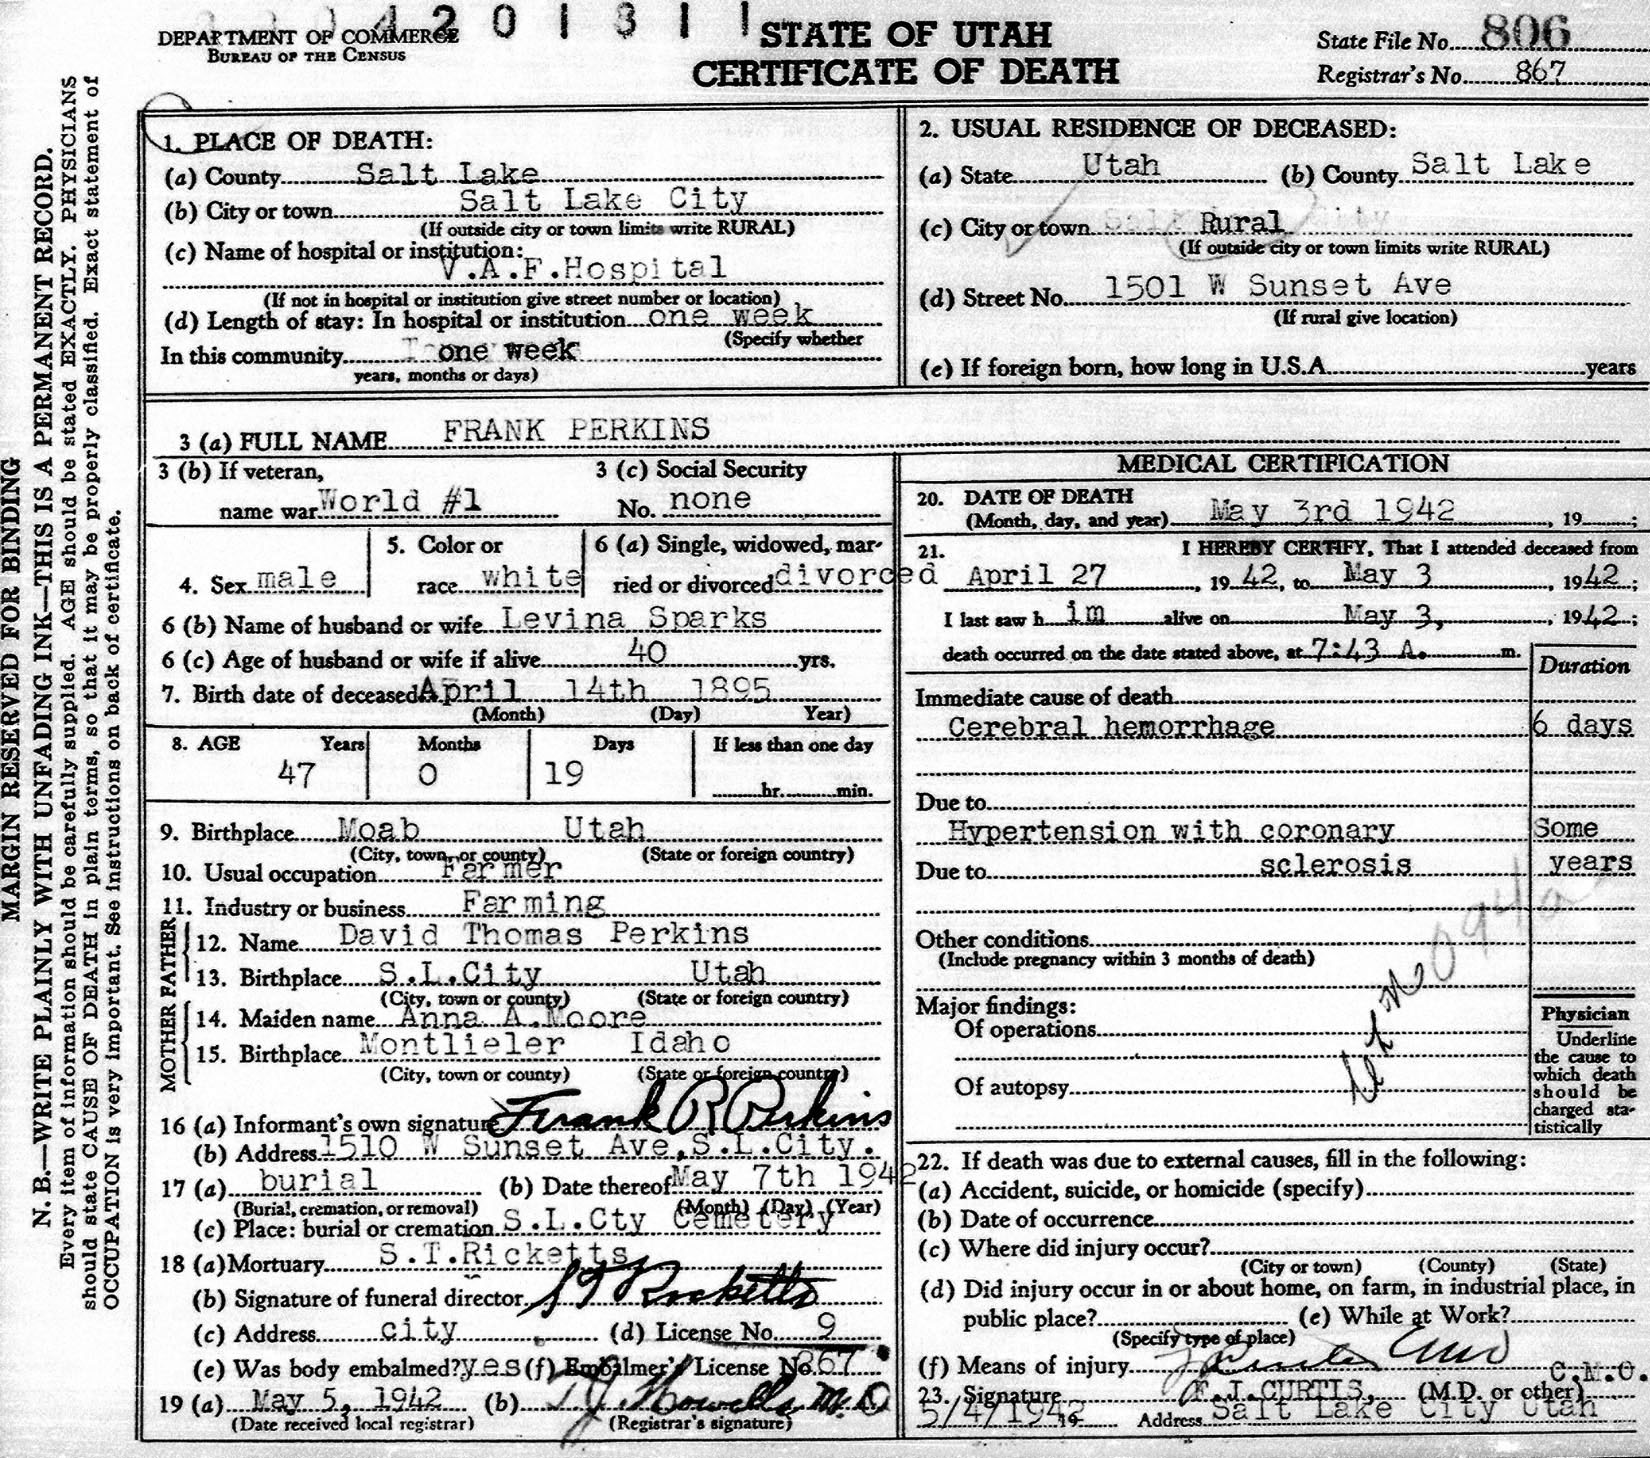 420131 1
DEPARTMENT OF COMMERCE
BUREAU OF THE CENSUS
STATE OF UTAH
CERTIFICATE OF DEATH
State File No. 806
Registrar's No. 867
MARGIN RESERVED FOR BINDING
N. B.—WRITE PLAINLY WITH UNFADING INK—THIS IS A PERMANENT RECORD.
Every item of information should be carefully supplied. AGE should be stated EXACTLY. PHYSICIANS
should state CAUSE OF DEATH in plain terms, so that it may be properly classified. Exact statement of
OCCUPATION is very important. See instructions on back of certificate.
1. PLACE OF DEATH:
(a) County Salt Lake
(b) City or town Salt Lake City
(If outside city or town limits write RURAL)
(c) Name of hospital or institution:
V.A.F.Hospital
(If not in hospital or institution give street number or location)
(d) Length of stay: In hospital or institution one week
(Specify whether
In this community one week
years, months or days)
2. USUAL RESIDENCE OF DECEASED:
(a) State Utah (b) County Salt Lake
(c) City or town Rural
(If outside city or town limits write RURAL)
(d) Street No. 1501 W Sunset Ave
(If rural give location)
(e) If foreign born, how long in U.S.A. years
3 (a) FULL NAME FRANK PERKINS
3 (b) If veteran,
name war World #1
3 (c) Social Security
No. none
4. Sex male
5. Color or
race white
6 (a) Single, widowed, mar-
ried or divorced divorced
6 (b) Name of husband or wife Levina Sparks
6 (c) Age of husband or wife if alive 40 yrs.
7. Birth date of deceased April 14th 1895
(Month) (Day) Year)
8. AGE Years Months Days If less than one day
47 0 19 hr. min.
9. Birthplace Moab Utah
(City, town, or county) (State or foreign country)
10. Usual occupation Farmer
11. Industry or business Farming
FATHER
12. Name David Thomas Perkins
13. Birthplace S.L.City Utah
(City, town or county) (State or foreign country)
MOTHER
14. Maiden name Anna A.Moore
15. Birthplace Montlieler Idaho
(City, town or county) (State or foreign country)
16 (a) Informant's own signature Frank R Perkins
(b) Address 1510 W Sunset Ave,S.L.City.
17 (a) burial (b) Date thereof May 7th 1942
(Burial, cremation, or removal) (Month) (Day) (Year)
(c) Place: burial or cremation S.L.Cty Cemetery
18 (a)Mortuary S.T.Ricketts
(b) Signature of funeral director S T Ricketts
(c) Address city (d) License No. 9
(e) Was body embalmed? yes (f) Embalmer's License No. 867
19 (a) May 5, 1942 (b) T. J. Howells M.D
(Date received local registrar) (Registrar's signature)
MEDICAL CERTIFICATION
20. DATE OF DEATH
(Month, day, and year) May 3rd 1942, 19 ;
21. I HEREBY CERTIFY, That I attended deceased from
April 27, 19 42, to May 3, 1942;
I last saw h im alive on May 3, , 1942;
death occurred on the date stated above, at 7:43 A. m.
Duration
Immediate cause of death
Cerebral hemorrhage 6 days
Due to
Hypertension with coronary Some
Due to sclerosis years
Other conditions
(Include pregnancy within 3 months of death)
Major findings:
Of operations
Of autopsy
Physician
Underline
the cause to
which death
should be
charged sta-
tistically
22. If death was due to external causes, fill in the following:
(a) Accident, suicide, or homicide (specify)
(b) Date of occurrence
(c) Where did injury occur?
(City or town) (County) (State)
(d) Did injury occur in or about home, on farm, in industrial place, in
public place? (e) While at Work?
(Specify type of place)
(f) Means of injury
C.M.O.
23. Signature F.J.CURTIS, (M.D. or other)
5/4/1942 19 Address Salt Lake City Utah